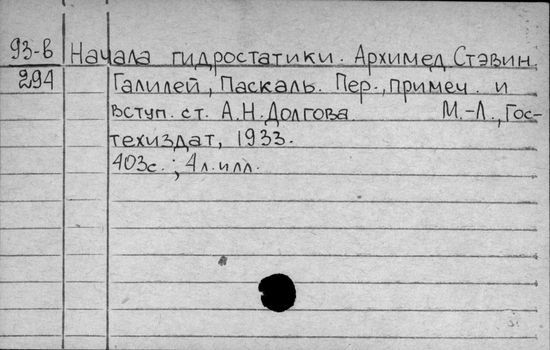 93-в Начала гидростатики. Архимед Стэвин.
294 Галилей, Паскаль. Пер., примеч. и
вступ. ст. А.Н.Долгова М.-Л., Гос-
техиздат, 1933.
403с.; 4л.илл.